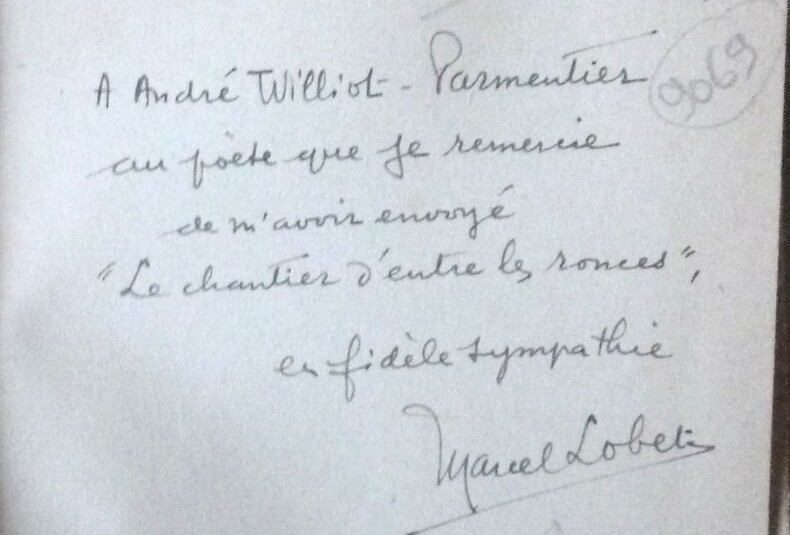 A André Williot - Parmentier
9069
au poète que je remercie
de m'avoir envoyé
"Le chantier d'entre les ronces",
en fidèle sympathie
Marcel Lobet